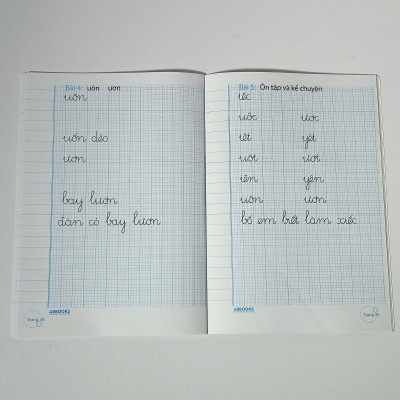 Bài 4: uôn ươn
uôn
uôn dẻo
ươn
bay lượn
đàn cò bay lượn
ABBOOKS
Bài 5: Ôn tập và kể chuyện
iêc
uôc ươc
iêt yêt
uôt ươt
iên yên
uôn ươn
bố em biết làm xiếc
ABBOOKS